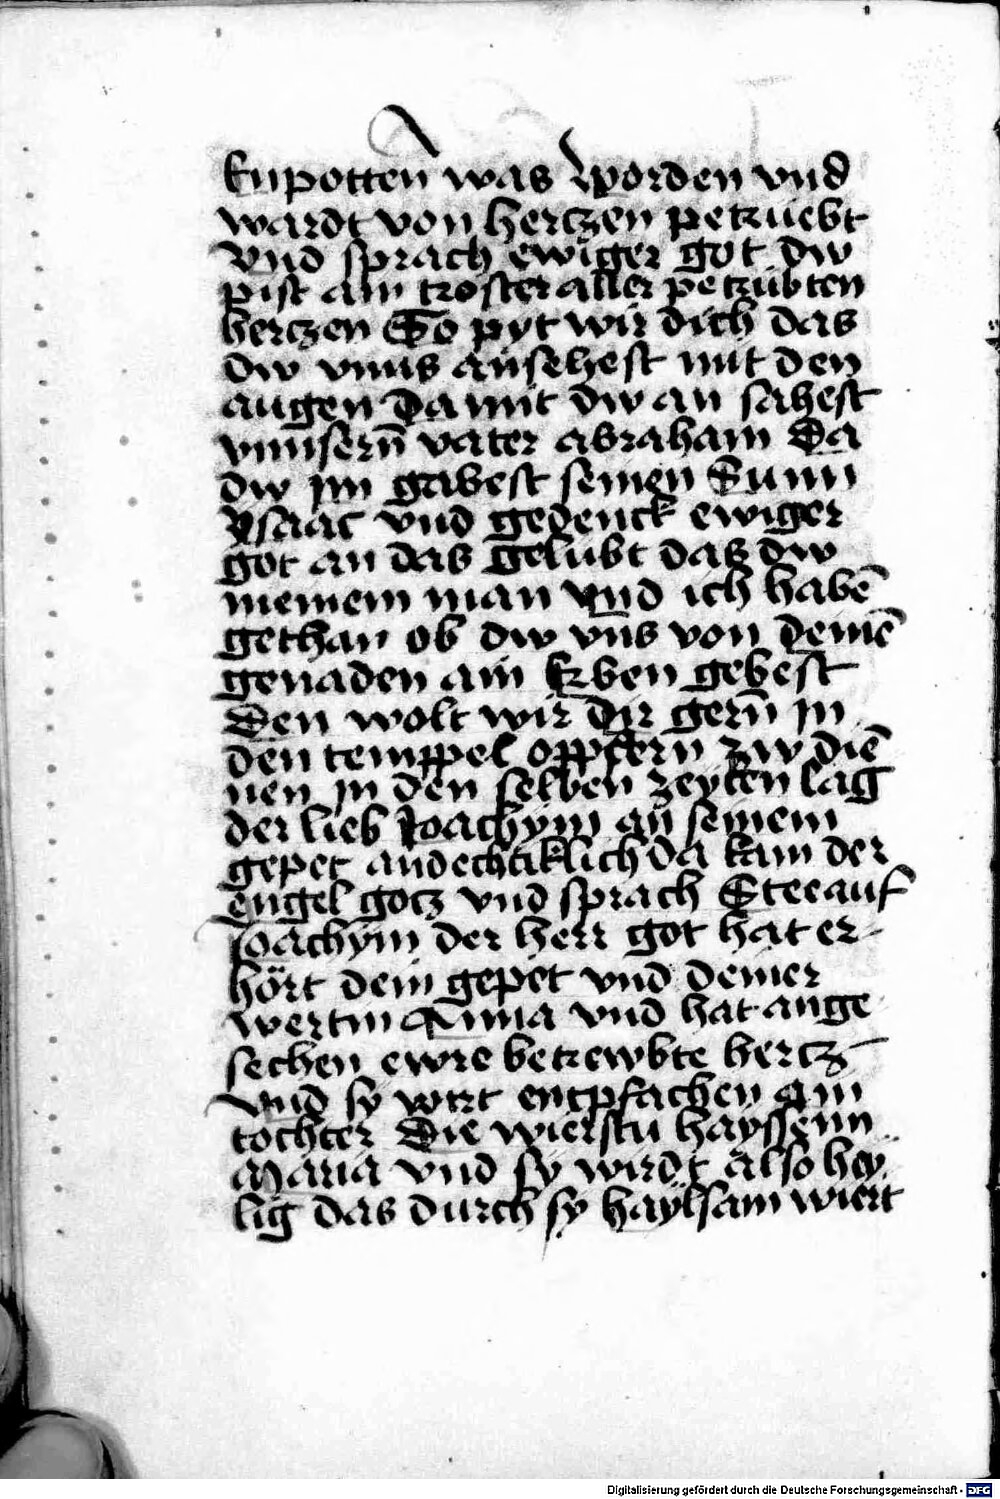 Enpotten was worden vnd
wardt von hertzen petruebt
Vnd sprach ewiger got dw
pist ain troster aller petrübten
hertzen So pyt wir dich das
dw vnns ansehest mit den
augen Da mit dw an sahest
vnnsern̄ vater abraham Da
dw jm gabest seinen Sunn
ysaac vnd gedenck ewiger
got an das gelubt das dw
meinem man vnd ich habē
gethan ob dw vns von deinē
genaden ain Erben gebest
Den wolt wir dir gern̄ jn
den temppel oppfern zw diē
nen jn den selben zeytten lag
der lieb Joachym an seinem
gepet andechtiklich da kam der
engel gotz vnd sprach Stee auf
Joachym der herr got hat er-
hört dein gepet vnd deiner
wertin Anna vnd hat ange
sechen ewre betrewbte hertz
Vnd sy wirt entpfachen ain
tochter Die wierstu hayssenn
Maria vnd sy wirdt also hey
lig das durch sy haylsam wiert
Digitalisierung gefördert durch die Deutsche Forschungsgemeinschaft - DFG